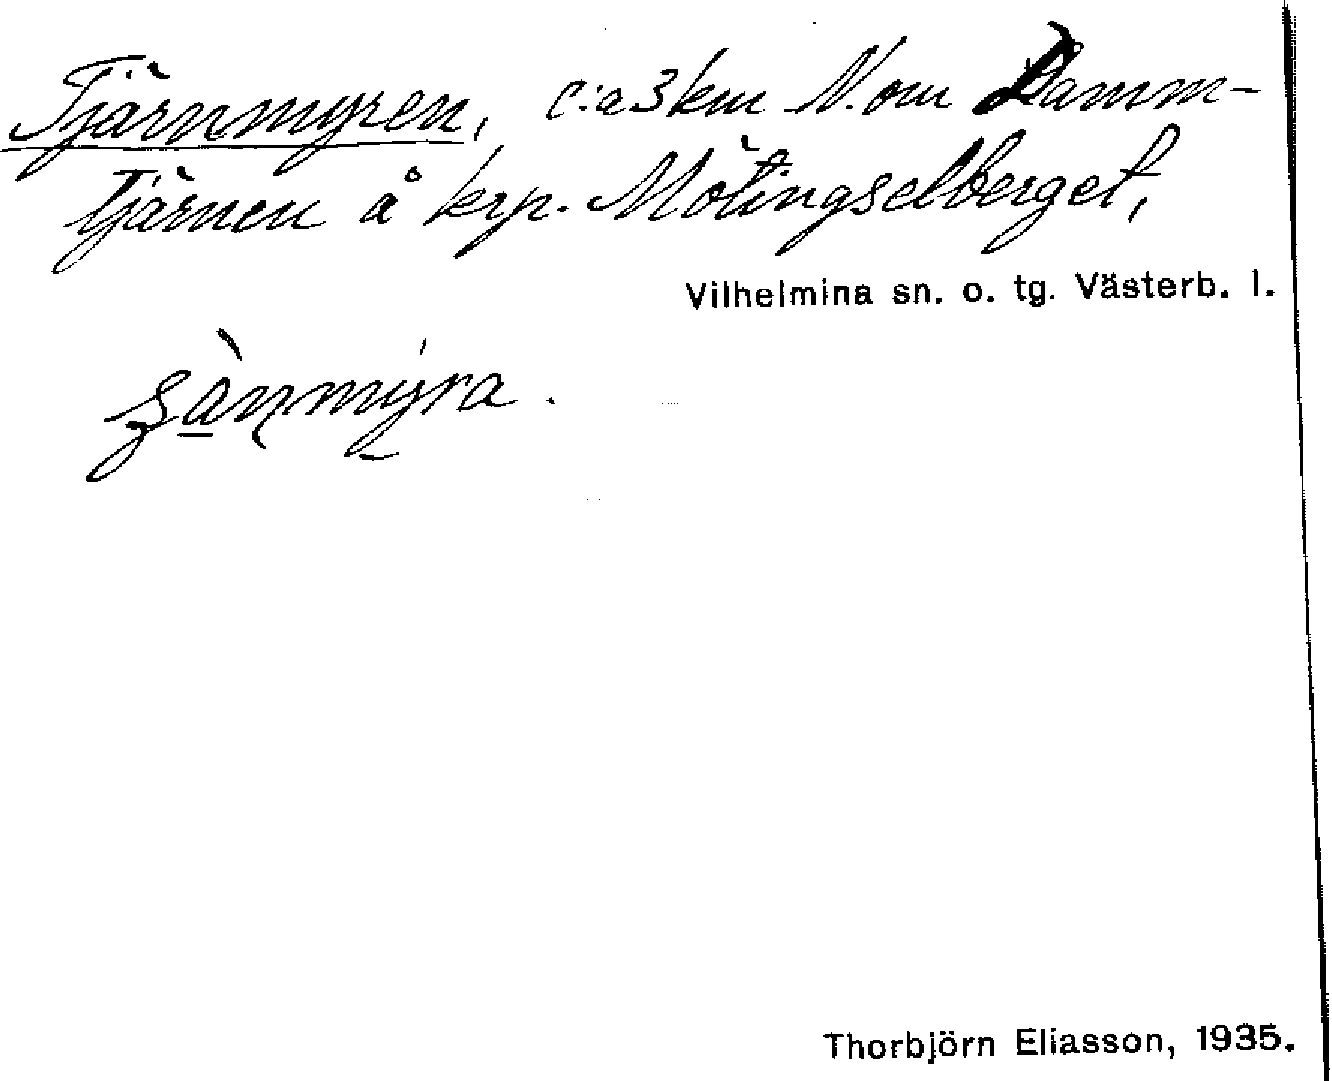 Tjärnmyren, c:a 3 km N. om Damm-
tjärnen å krp. Mötingselberget,
Vilhelmina sn. o. tg. Västerb. l.
Thorbjörn Eliasson, 1935.